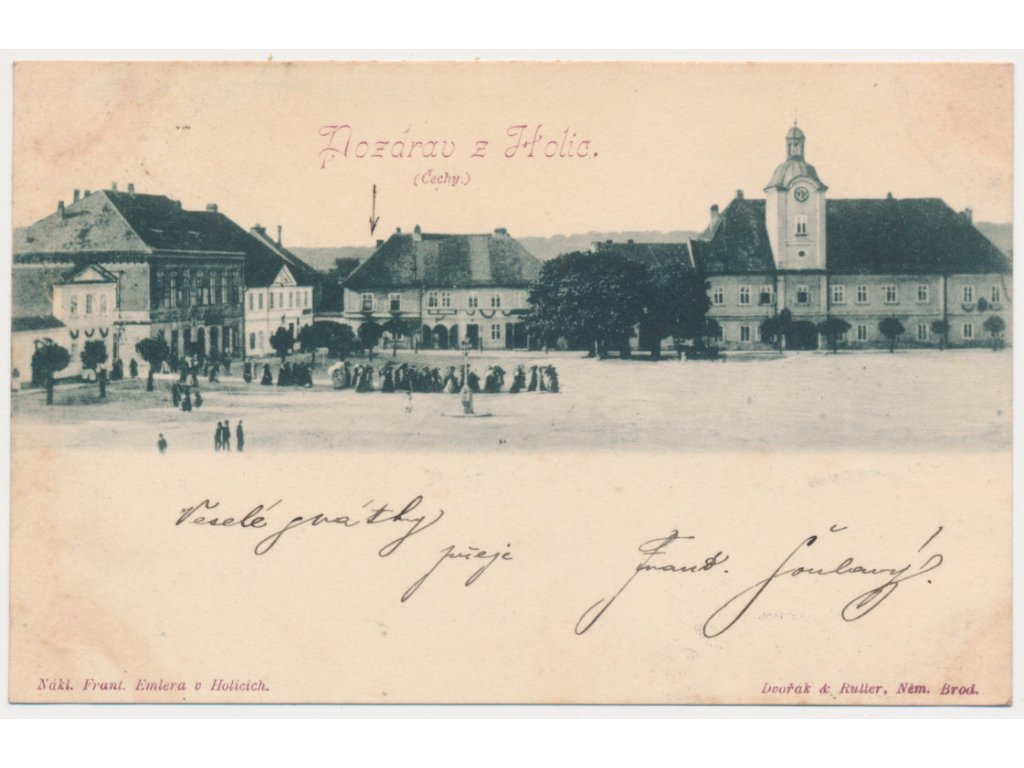 Pozdrav z Holic.
(Čechy.)
Veselé svátky
přeje
Frant. Šoulavý.
Nákl. Frant. Emlera v Holicích.
Dvořák & Ruller, Něm. Brod.